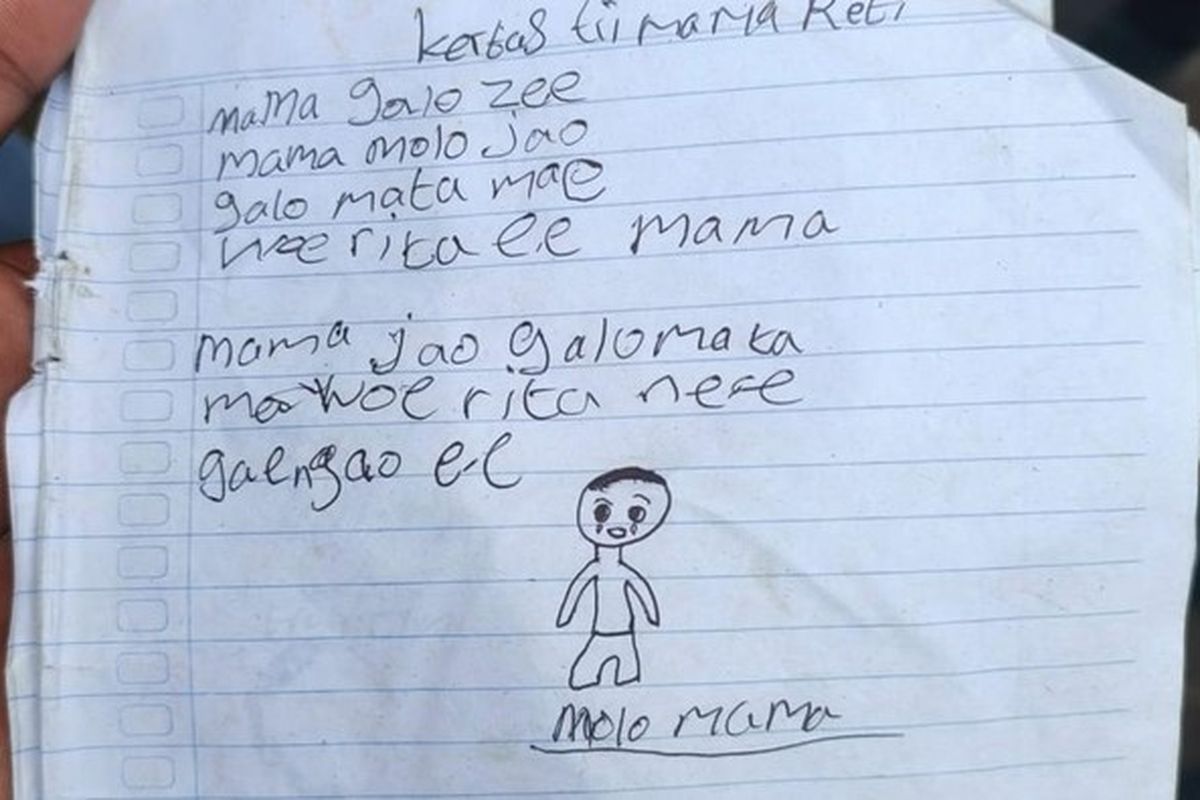 kertas tii mama Reti
mama galo zee
mama molo jao
galo mata mae
woe rita ee mama
mama jao galo mata
mae woe rita ne e e
gaengao ee
molo mama